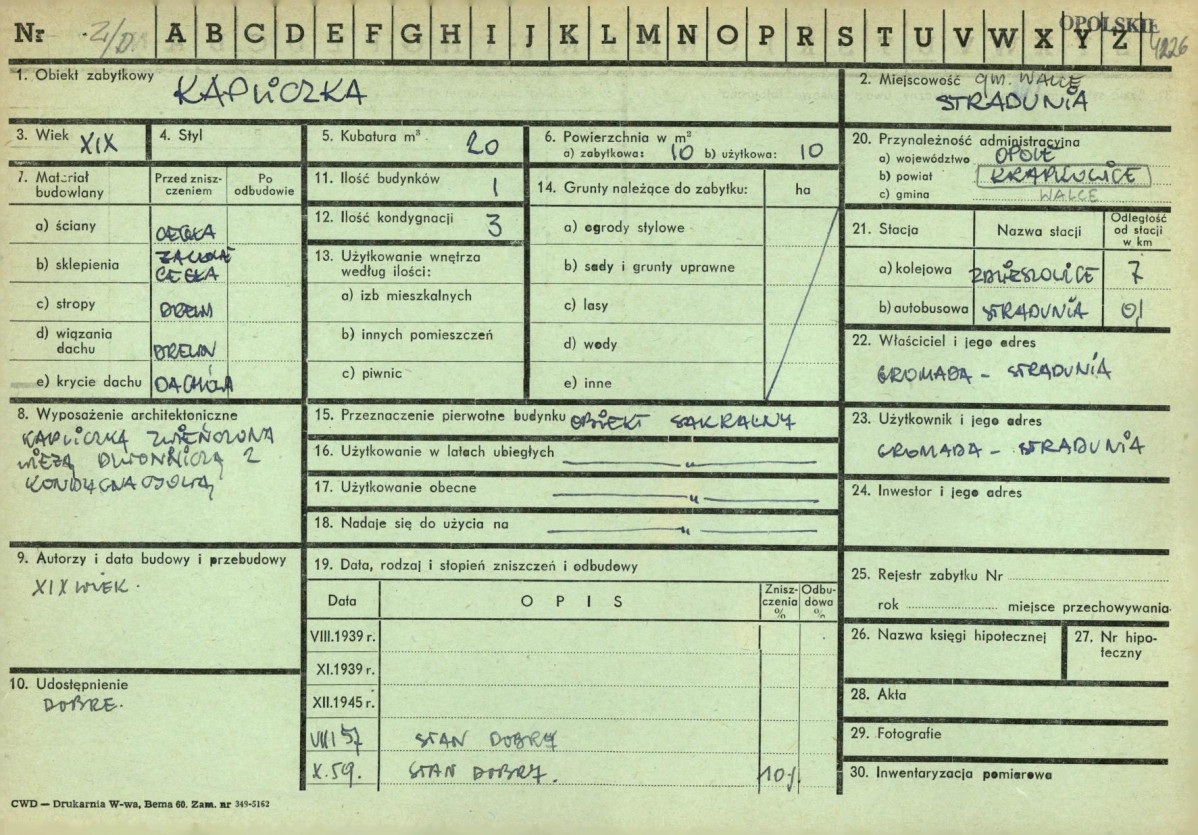 Nr Z/D A B C D E F G H I J K L M N O P R S T U V W X Y Z OPOLSKIE 4226
1. Obiekt zabytkowy KAPLICZKA
2. Miejscowość gm. WALCE
STRADUNIA
3. Wiek XIX
4. Styl
5. Kubatura m³ 20
6. Powierzchnia w m²
a) zabytkowa: 10 b) użytkowa: 10
7. Materiał budowlany
Przed zniszczeniem
Po odbudowie
a) ściany CEGŁA
b) sklepienia
CEGŁA
c) stropy DREWN
d) wiązania dachu DREWN
e) krycie dachu DACHÓWA
8. Wyposażenie architektoniczne
KAPLICZKA ZWIEŃCZONA
WIEŻĄ DZWONNICZĄ 2
KONDYGNACJOWĄ
9. Autorzy i data budowy i przebudowy
XIX WIEK.
10. Udostępnienie
DOBRE.
11. Ilość budynków 1
12. Ilość kondygnacji 3
13. Użytkowanie wnętrza
według ilości:
a) izb mieszkalnych
b) innych pomieszczeń
c) piwnic
14. Grunty należące do zabytku: ha
a) ogrody stylowe
b) sady i grunty uprawne
c) lasy
d) wody
e) inne
15. Przeznaczenie pierwotne budynku OBIEKT SAKRALNY
16. Użytkowanie w latach ubiegłych — " —
17. Użytkowanie obecne — " —
18. Nadaje się do użycia na — " —
19. Data, rodzaj i stopień zniszczeń i odbudowy
Data
OPIS
Zniszczenia %
Odbudowa %
VIII.1939 r.
XI.1939 r.
XII.1945 r.
VIII 57 STAN DOBRY
X.59. STAN DOBRY. 10%
20. Przynależność administracyjna
a) województwo OPOLE
b) powiat KRAPKOWICE
c) gmina WALCE
21. Stacja
Nazwa stacji
Odległość od stacji w km
a) kolejowa ZDZIESZOWICE 7
b) autobusowa STRADUNIA 0,1
22. Właściciel i jego adres
GROMADA - STRADUNIA
23. Użytkownik i jego adres
GROMADA - STRADUNIA
24. Inwestor i jego adres
25. Rejestr zabytku Nr
rok miejsce przechowywania
26. Nazwa księgi hipotecznej
27. Nr hipoteczny
28. Akta
29. Fotografie
30. Inwentaryzacja pomiarowa
CWD — Drukarnia W-wa, Bema 60. Zam. nr 349-5162